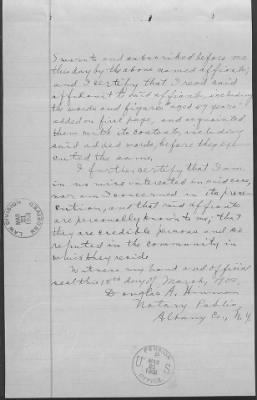 Sworn to and subscribed before me
this day by the above named affiants;
and I certify that I read said
affidavit to said affiants, including
the words and figures "aged 57 years"
added on first page, and acquainted
them with its contents, including
said added words, before they exe-
cuted the same.
I further certify that I am
in no wise interested in said case,
nor am I concerned in its prose-
cution, and that said affiants
are personally known to me, that
they are credible persons and so
reputed in the community in
which they reside.
Witness my hand and official
seal this day of March, 1900.
Douglas A.
Notary Public
Albany Co., N.Y.
LAW DIVISION
MAR
U.S. PENSION OFFICE
MAR